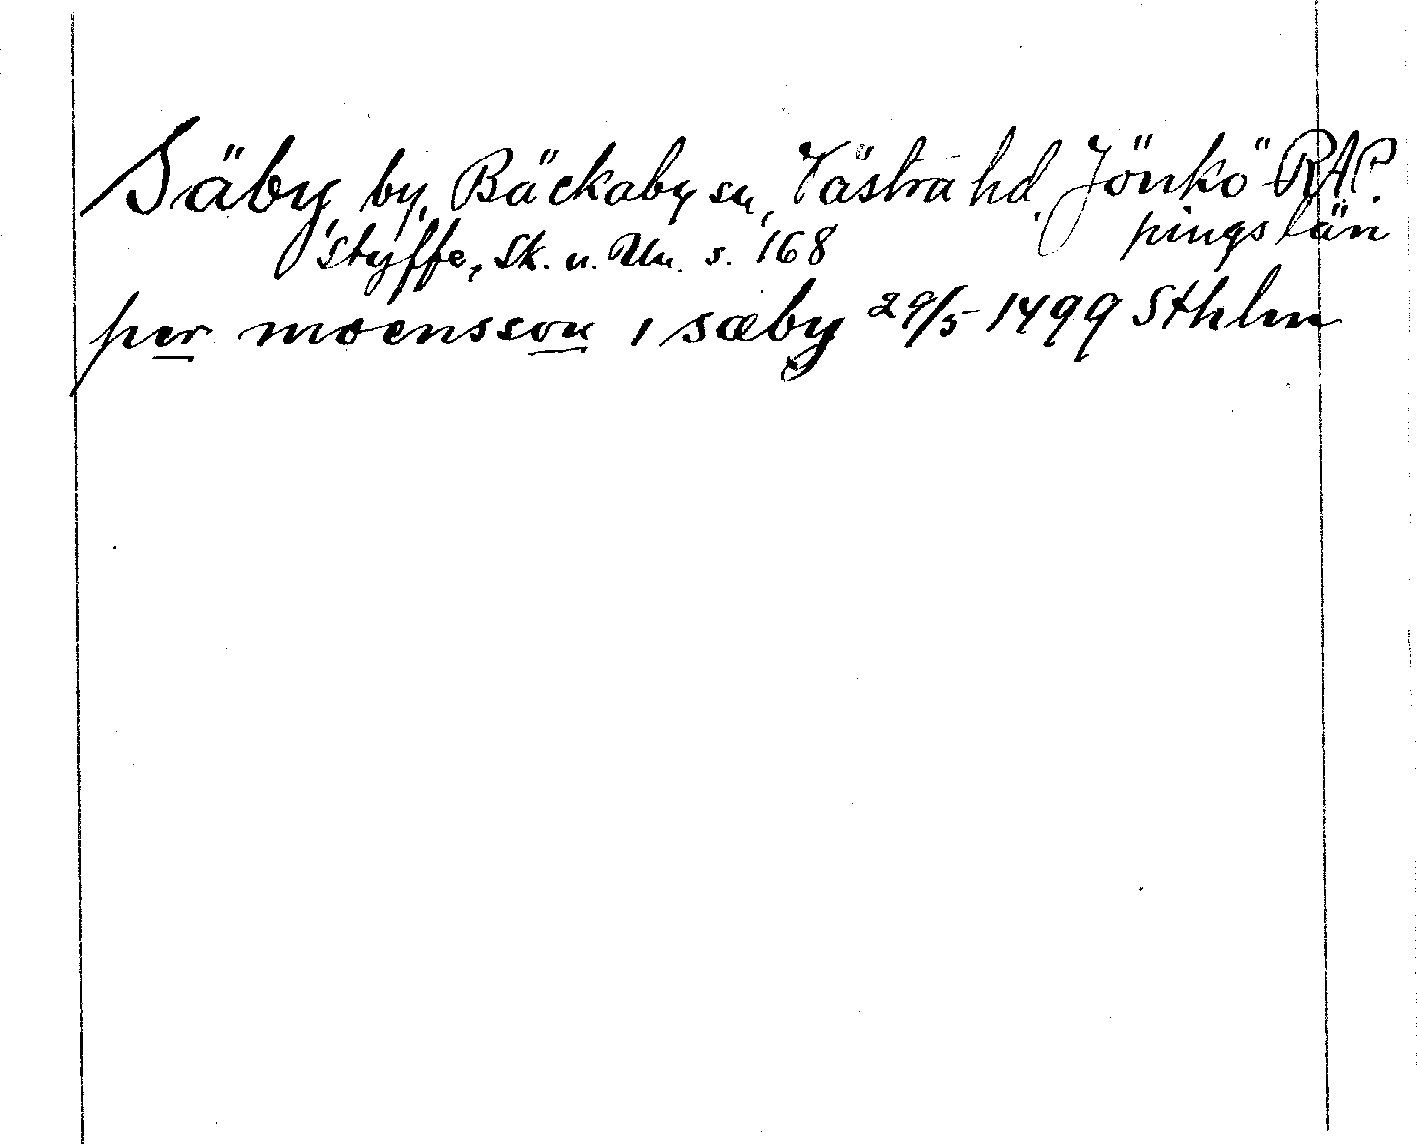 Säby by, Bäckaby sn, Västra hd. Jönkö- RAP
pings län
Styffe, Sk. u. Un. s. 168
per moensson i sæby 29/5 1499 Sthlm